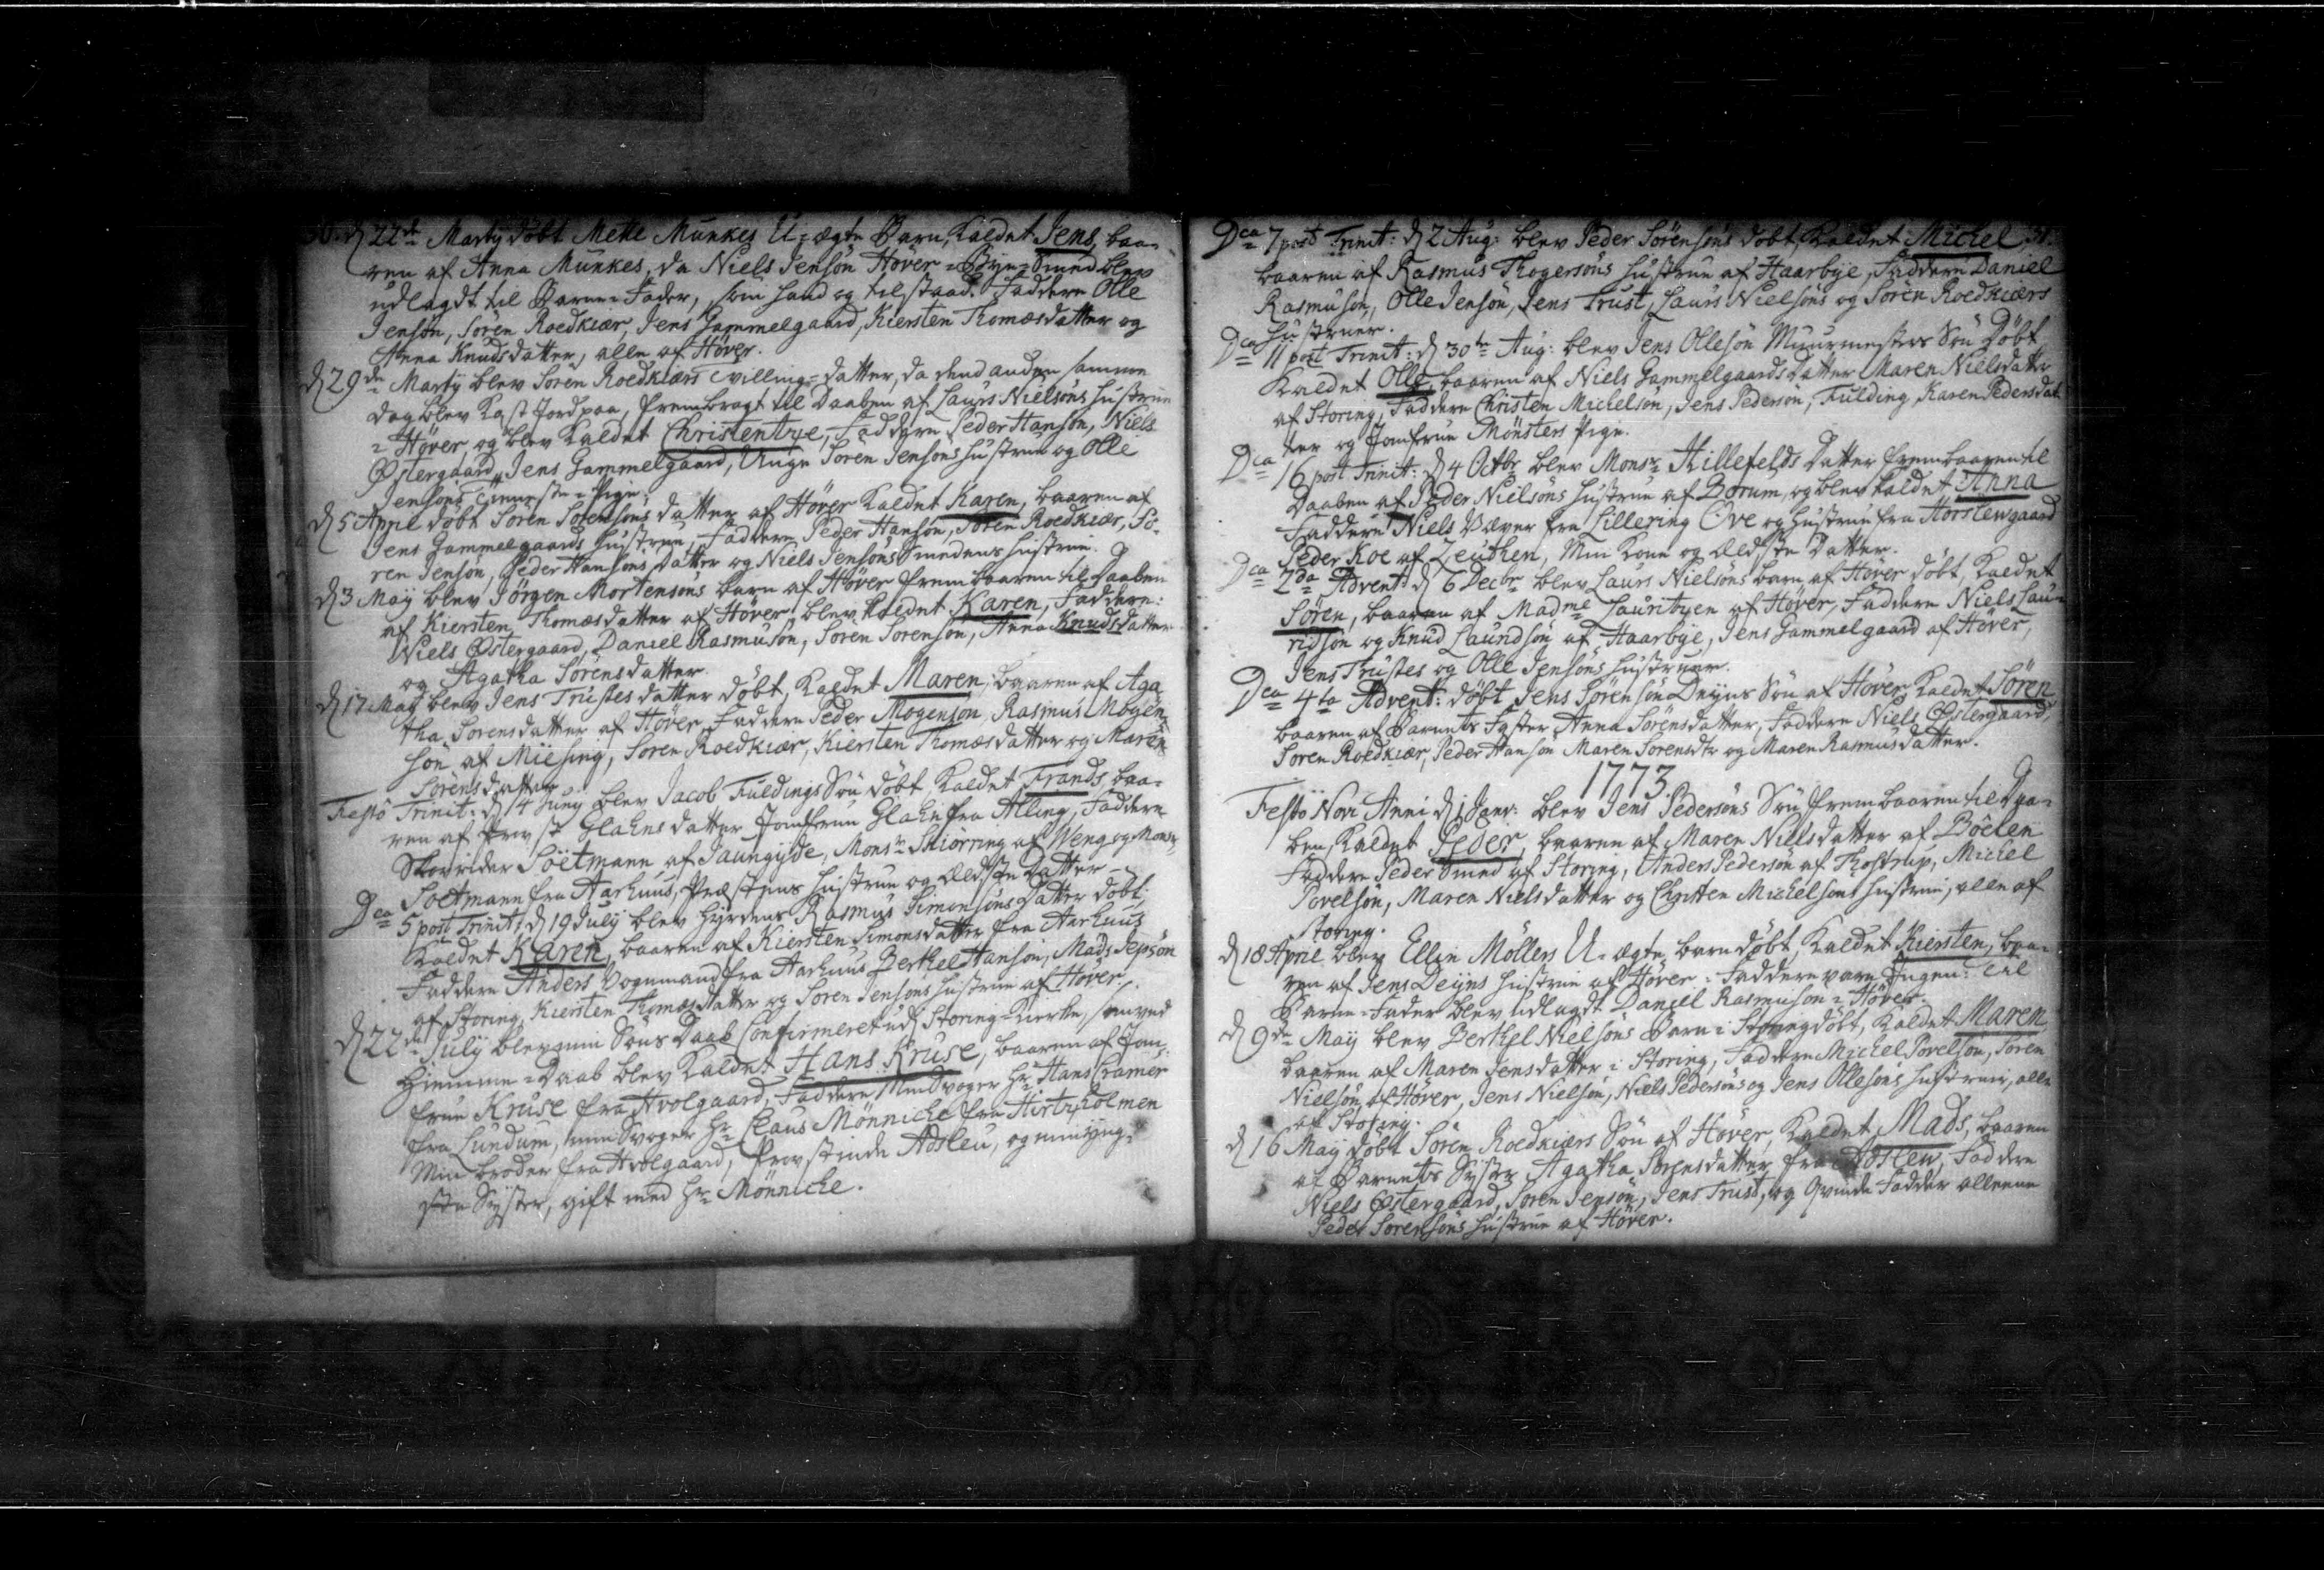 30. d 22de Martÿ döbt Mette Munkes U-ægte Barn, kaldet Jens, baa-
ren af Anna Munkes, da Niels Jensön Höver-Bÿe-Smed blev
udlagdt til Barne-Fader, som hand og tilstaad. Faddere Olle
Jensön, Sören Roedkiær, Jens Gammelgaard, Kiersten Thomæsdatter og
Anna Knudsdatter, alle af Höver.
d 29de Martÿ blev Sören Roedkiærs tvilling-datter, da dend anden samme
dag blev kast Jord paa, frembragt til Daaben af Laurs Nielsöns hustrue
i Höver, og blev kaldet Christentze, Faddere Peder Hansön, Niels
Østergaard, Jens Gammelgaard, Unge Sören Jensöns hustrue og Olle
Jensöns Tieneste-Pige.
d 5 April döbt Sören Sörensöns datter af Höver kaldet Karen, baaren af
Jens Gammelgaards hustrue, Faddere Peder Hansön, Sören Roedkiær, Sö-
ren Jensön, Peder Hansöns datter og Niels Jensöns Smedens hustrue.
d 3 Maÿ blev Jörgen Mortensöns barn af Höver frembaaren til Daaben
af Kiersten Thomæsdatter af Höver blev kaldet Karen, Faddere:
Niels Østergaard, Daniel Rasmusön, Sören Sörensön, Anna Knudsdatter
og Agatha Sörensdatter.
d 17 Maÿ blev Jens Trustes datter döbt, kaldet Maren, baaren af Aga
tha Sörensdatter af Höver, Faddere Peder Mogensön, Rasmus Mogen-
sön af Miesing, Sören Roedkiær, Kiersten Thomæsdatter og Maren
Sörensdatter
Festo Trinit: d 14 Junÿ blev Jacob Fuldings Sön döbt, kaldet Frands baa-
ren af Provst Glahns datter Jomfrue Glahn fra Alling, Faddere
Skovrider Söetmann af Jaungÿde, Monsr Skiörring af Weng og Monsr
Soetmann fra Aarhuus, Præstens hustrue og ældste datter
Dca 5 post Trinit: d 19 Julÿ blev hÿrdens Rasmus Simonsöns Datter döbt,
kaldet Karen, baaren af Kiersten Simonsdatter fra Aarhuus
Faddere Anders Vognmand fra Aarhuus Berthel Hansön, Mads Jepsön
af Storing, Kiersten Thomæsdatter og Sören Jensöns hustrue af Höver.
d 22de Julÿ blev min Söns Daab Confirmeret udi Storing-Kierke, som ved
Hiemme-Daab blev kaldet Hans Kruse, baaren af Jom-
frue Kruse fra Avolgaard, Faddere Min Svoger Hr Hans Cramer
fra Lundum, min Svoger Hr Claus Mönniche fra Hirtzholmen
Min broder fra Avolgaard, Provstinde Adsleu, og min ÿng-
ste Sÿster, gift med Hr Mönniche.
Dca 7 post Trinit: d 2 Aug: blev Peder Sörensöns döbt, kaldet Michel 31.
baaren af Rasmus Thogersöns hustrue af Haarbÿe, Faddere Daniel
Rasmusön, Olle Jensön, Jens Trust, Laurs Nielsöns og Sören Roedkiærs
hustruer.
Dca 11 post Trinit: d 30te Aug: blev Jens Ollesön Muurmesters Sön Döbt
kaldet Olle, baaren af Niels Gammelgaards datter Maren Nielsdatter
af Storing, Faddere Christen Michelsön, Jens Pedersön, Fulding, Karen Pedersdat
ter og Jomfrue Mönsters Pige.
Dca 16 post Trinit: d 4 Octbr blev Monsr Hillefelds Datter frembaaren til
Daaben af Peder Nielsöns hustrue af Borum, og blev kaldet Anna
Faddere Niels Væver fra Lillering Ove og hustrue fra Hörslewgaard
Peder Koe af Zeuthen, Min Kone og ældste Datter.
Dca 2da Advent: d 6 Decbr blev Laurs Nielsöns barn af Höver döbt, kaldet
Sören, baaren af Madme Lauritzen af Höver, Faddere Niels Lau-
ridsön og Knud Lauridsön af Haarbÿe, Jens Gammelgaard af Höver,
Jens Trustes og Olle Jensöns hustruer.
Dca 4ta Advent: döbt Jens Sörensön Deÿns Sön af Höver, kaldet Sören
baaren af Barnets Faster, Anna Sörensdatter, Faddere Niels Østergaard,
Sören Roedkiær, Peder Hansön Maren Sörensdtr og Maren Rasmusdatter.
1773.
Festo Novi Anni d 1 Janv: blev Jens Pedersöns Sön frembaaren til Daa-
ben, kaldet Peder, baaren af Maren Nielsdatter af Böelen
Faddere Peder Smed af Storing, Anders Pedersön af Thostrup, Michel
Povelsön, Maren Nielsdatter og Christen Michelsöns hustrue, alle af
Storing.
d 18 April blev Ellen Möllers U-ægte barn döbt, kaldet Kiersten, baa-
ren af Jens Deÿns hustrue af Höver: Faddere vare Ingen: Til
Barne-Fader blev udlagdt Daniel Rasmusön i Höver.
d 9de Maÿ blev Berthel Nielsöns Barn i Storing döbt, kaldet Maren
baaren af Maren Jensdatter i Storing, Faddere Michel Povelsön, Sören
Nielsön af Höver, Jens Nielsön, Niels Pedersöns og Jens Ollesöns hustruer, alle
af Storing.
d 16 Maÿ döbt Sören Roedkiærs Sön af Höver, kaldet Mads, baaren
af Barnets Sÿster Agatha Sörensdatter fra Adslew, Faddere
Niels Østergaard, Sören Jensön, Jens Trust, og Qvinde Fadder alleene
Peder Sörensöns hustrue af Höver.